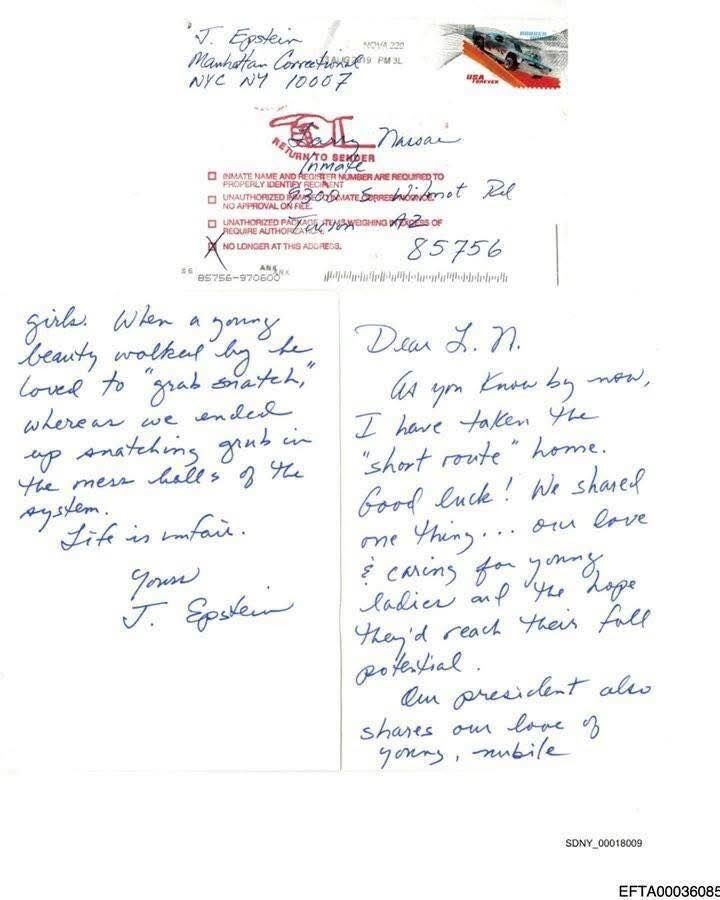 J. Epstein
Manhattan Correctional
NYC NY 10007
NOVA 220
AUG 2019 PM 3L
USA
FOREVER
RETURN TO SENDER
Larry Nassar
Inmate
9300 S. Wilmot Rd
Tucson AZ
85756
INMATE NAME AND REGISTER NUMBER ARE REQUIRED TO
PROPERLY IDENTIFY RECIPIENT
UNAUTHORIZED INMATE TO INMATE CORRESPONDENCE.
NO APPROVAL ON FILE.
UNAUTHORIZED PACKAGE. ITEMS WEIGHING EXCESS OF
REQUIRE AUTHORIZATION.
X NO LONGER AT THIS ADDRESS.
85756-970600
ANK
Dear L. N.
As you know by now,
I have taken the
"short route" home.
Good luck! We shared
one thing... our love
& caring for young
ladies and the hope
they'd reach their full
potential.
Our president also
shares our love of
young, nubile
girls. When a young
beauty walked by he
loved to "grab snatch,"
whereas we ended
up snatching grub in
the mess halls of the
system.
Life is unfair.
Yours
J. Epstein
SDNY_00018009
EFTA00036085